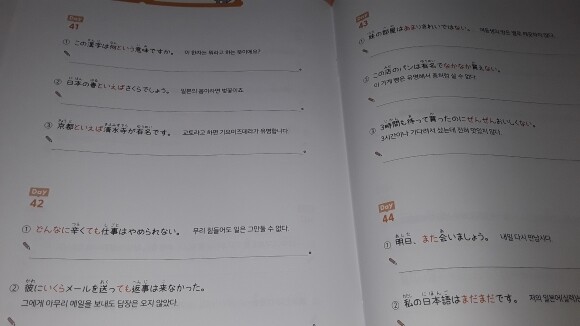 Day
41
① この漢字は何という意味ですか。 이 한자는 뭐라고 하는 뜻이에요?
② 日本の春といえばさくらでしょう。 일본의 봄이라면 벚꽃이죠.
③ 京都といえば清水寺が有名です。 교토라고 하면 기요미즈데라가 유명합니다.
Day
42
① どんなに辛くても仕事はやめられない。 아무리 힘들어도 일은 그만둘 수 없다.
② 彼にいくらメールを送っても返事は来なかった。
그에게 아무리 메일을 보내도 답장은 오지 않았다.
Day
43
① 妹の部屋はあまりきれいではない。
② この店のパンは有名でなかなか買えない。
이 가게 빵은 유명해서 좀처럼 살 수 없다.
③ 3時間も待って買ったのにぜんぜんおいしくない。
3시간이나 기다려서 샀는데 전혀 맛있지 않다.
Day
44
① 明日、また会いましょう。 내일 다시 만납시다.
② 私の日本語はまだまだです。 저의 일본어